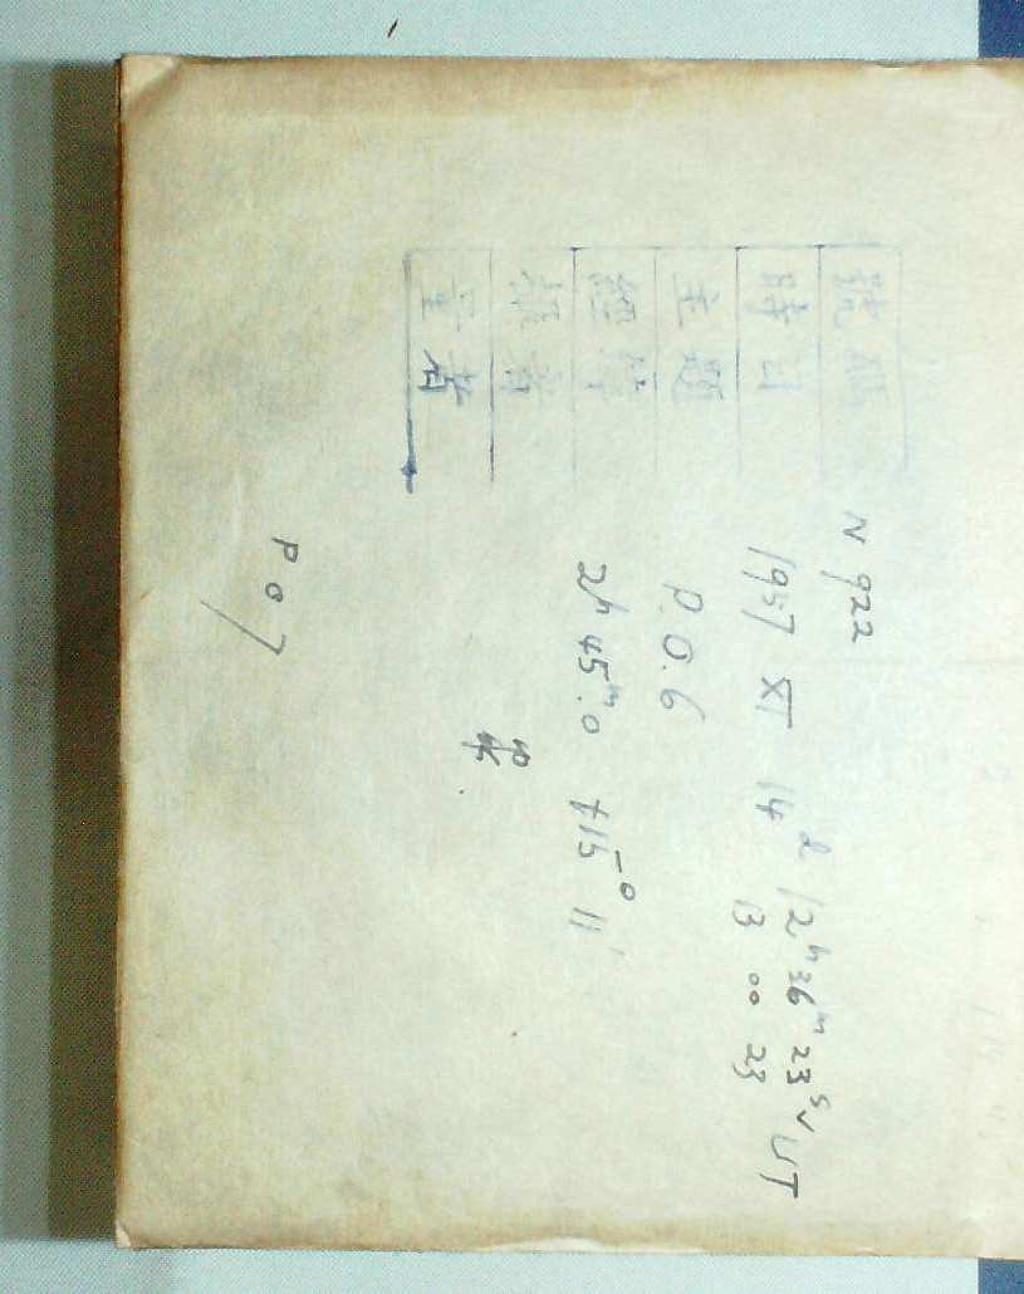 號碼 N 922
時日 1957 XI 14ᵈ 12ʰ36ᵐ23ˢ UT
13 00 23
主題 P.O.6
經緯 2ʰ 45ᵐ.0 +15° 11'
攝者
量者
P 07